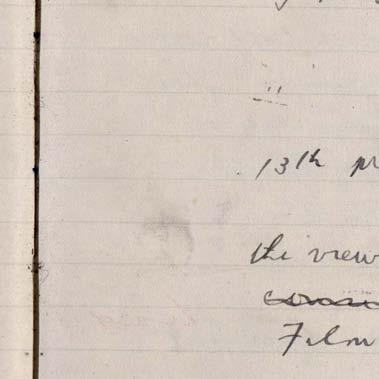 "
13th pr
the view
Film